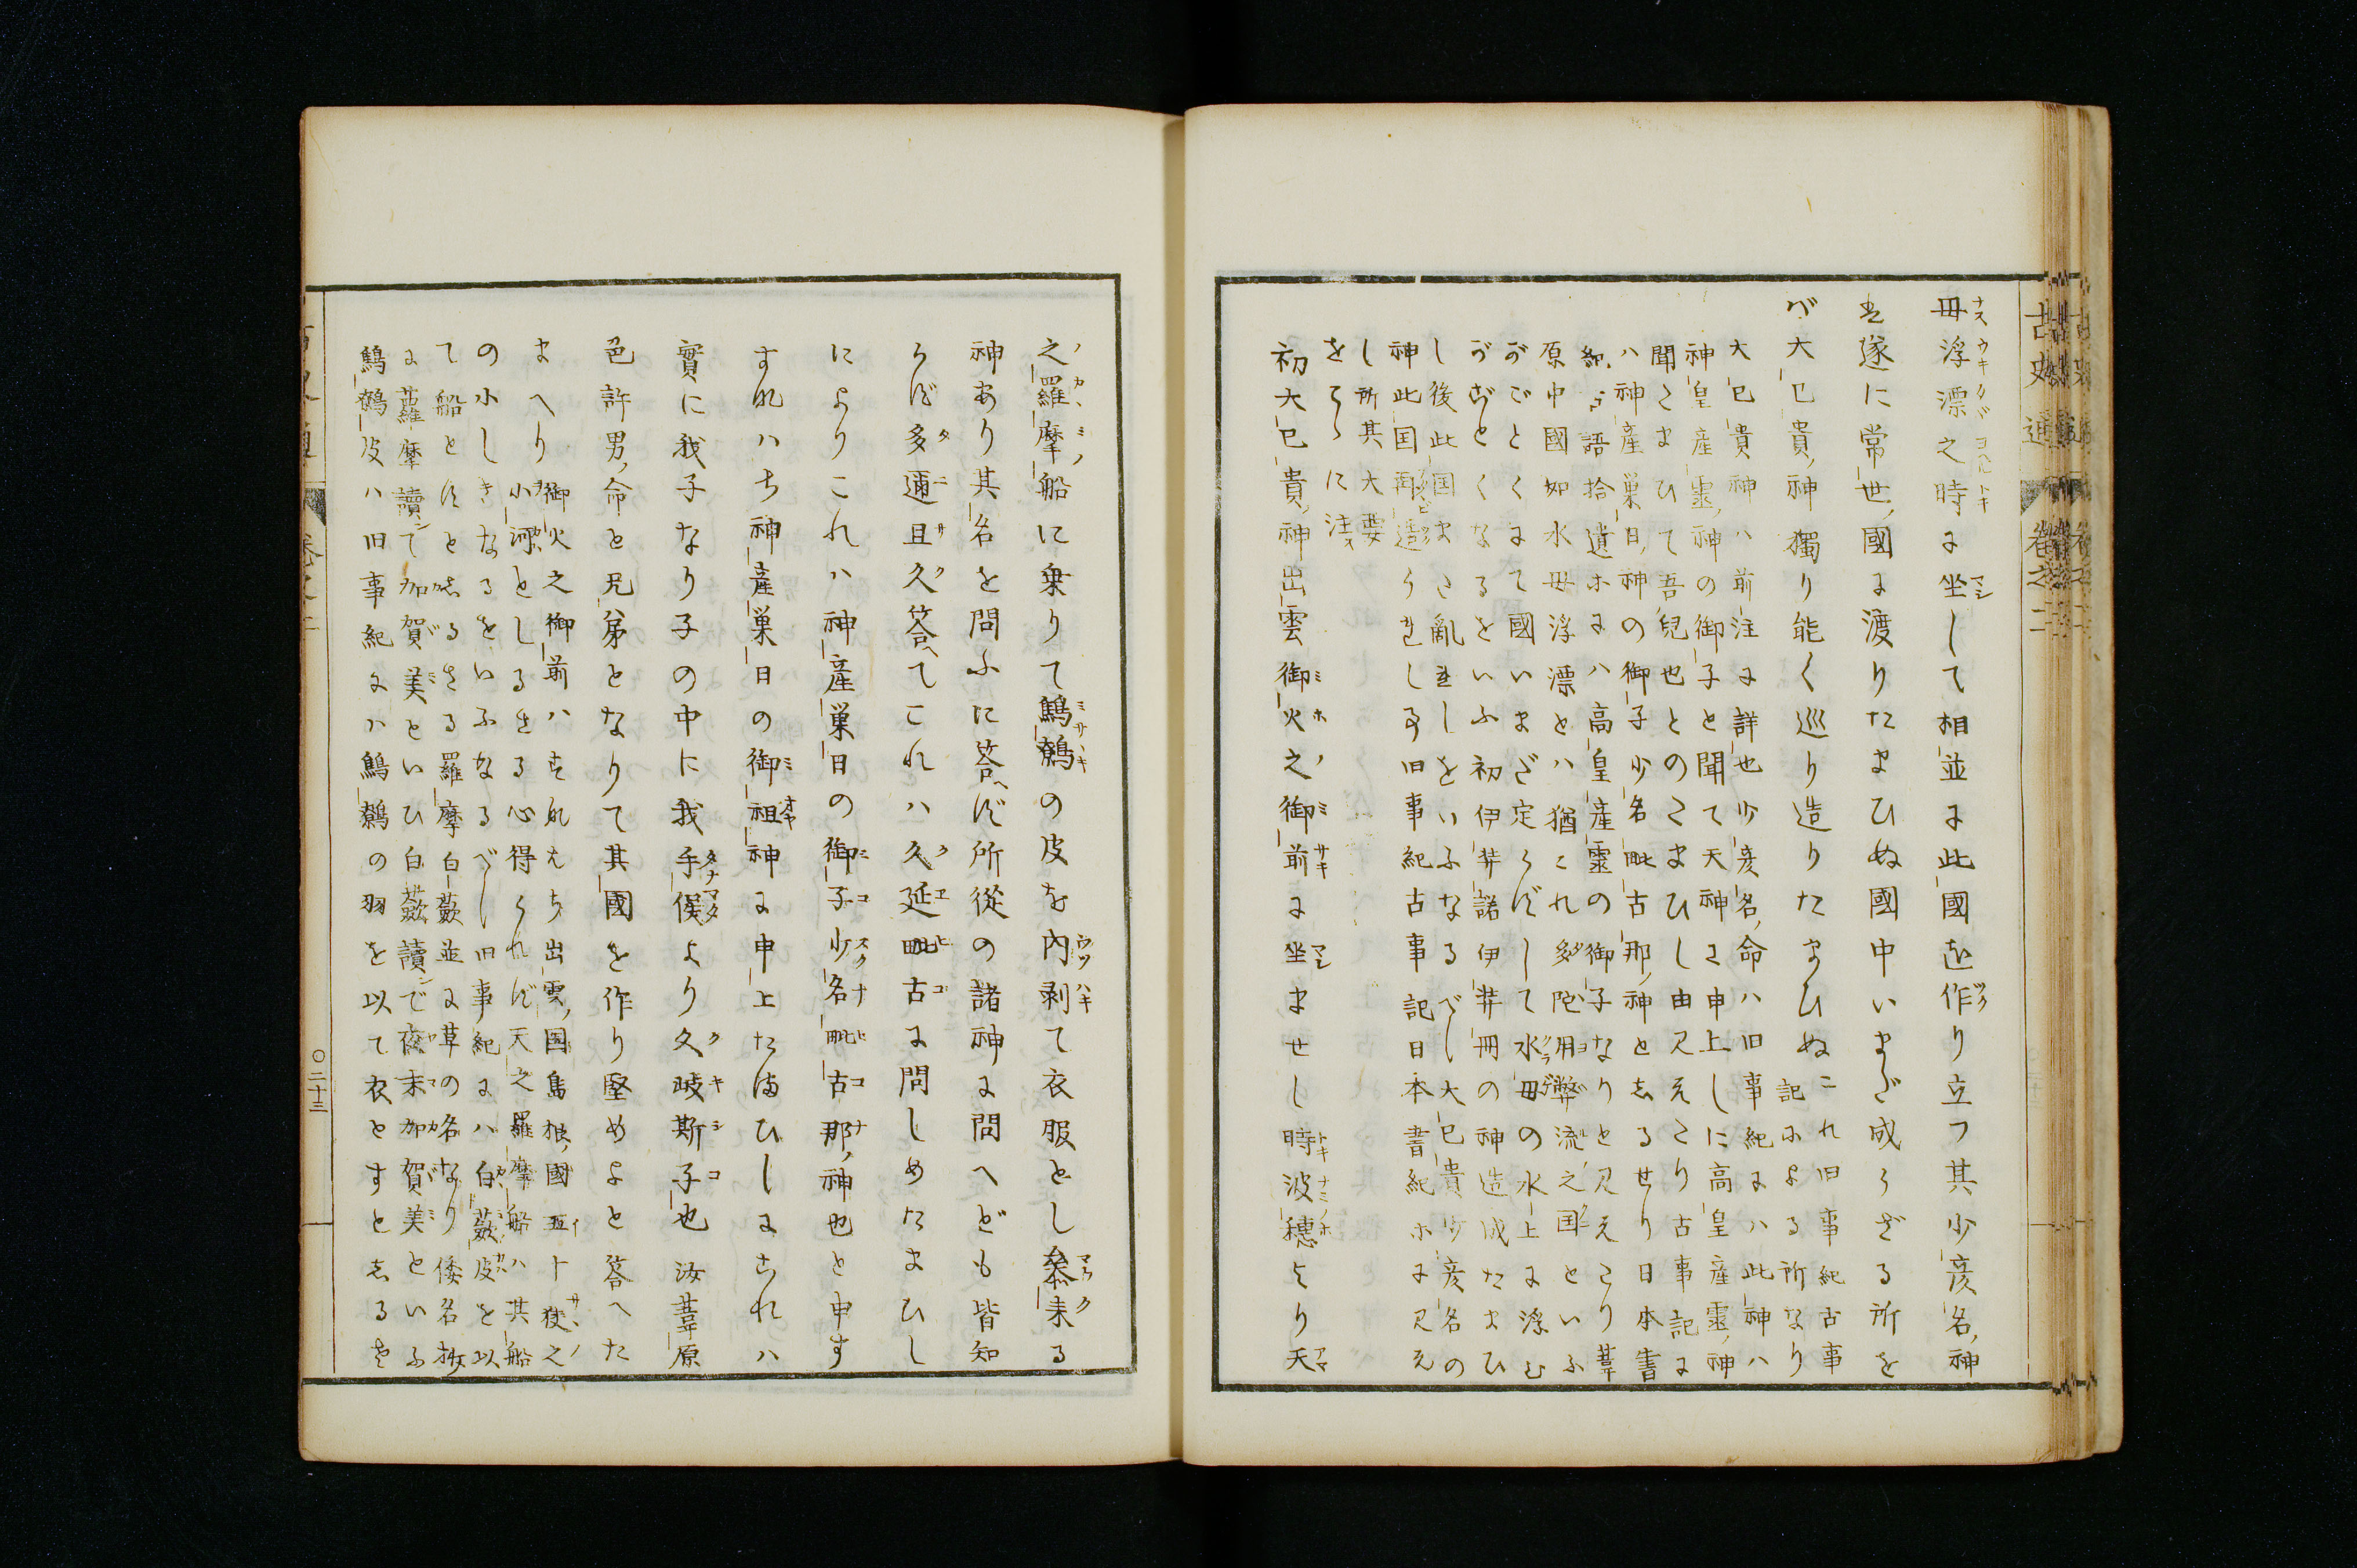 母浮漂之時に坐して相並に此國造作り立つ其少彦名神
遂に常世國に渡りたまひぬ國中いまだ成らざる所を
バ大已貴神獨り能く巡り造りたまひぬ
これ旧事紀古事
記による所なり
大已貴神ハ前注に詳也少彦名命ハ旧事紀にハ此神ハ
神皇産靈神の御子と聞て天神に申上しに高皇産靈神
聞たまひて吾兒也とのたまひし由見えたり古事記に
ハ神産巣日神の御子少名毗古那神とあるせり日本書
紀古語拾遺ホにハ高皇産靈の御子なりと見えたり葦
原中國如水母浮漂とハ猶これ多陀用弊流之国といふ
がごとくにて國いまだ定らずして水母の水上に浮む
がごとくなるをいふ初伊弉諾伊弉冊の神造成たまひ
し後此国まさ亂れしをいふなるべし大已貴少彦名の
神此国再造られし事旧事紀古事記日本書紀ホに見え
し所其大要
をこゝに注ス
初大已貴神出雲御火之御前に坐ませし時波穂より天
之羅摩船に乗りて鷦鷯の皮を内剥て衣服とし參来る
神あり其名を問ふに答へず所從の諸神に問へども皆知
らず多邇且久答へてこれハ久延毗古に問しめたまひし
によりこれハ神産巣日の御子少名毗古那神也と申す
すなハち神産巣日の御祖神に申上たまひしにこれハ
實に我子なり子の中に我手俣より久岐斯子也汝葦原
色許男命と兄弟となりて其國を作り堅めよと答へた
まへり
御火之御前ハすなハち出雲国島根國五十狭之
小河としるせる心得られず天之羅摩船ハ其船
の小しきなるをいふなるべし旧事紀にハ白蘞皮を以
て船とすとあるさる羅摩白蘞並に草の名なり倭名抄
に蘿摩讀て加賀美といひ白蘞讀で夜末加賀美といふ
鷦鷯皮ハ旧事紀にハ鷦鷯の羽を以て衣とすとあるせ
〇二十三
古史通
卷之二